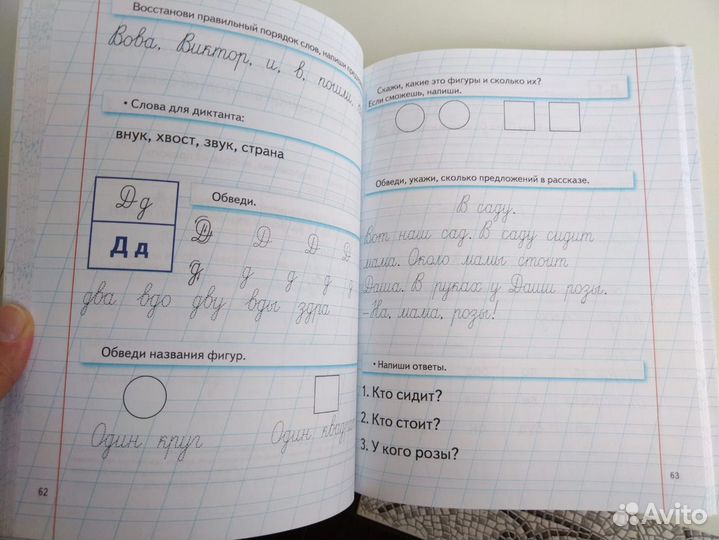 Восстанови правильный порядок слов, напиши
Вова, Виктор, и, в, пошли,
• Слова для диктанта:
внук, хвост, звук, страна
Д д
Обведи.
Д д
Д Д Д Д
д д д д д
два вдо дву вды здра
Обведи названия фигур.
Один круг Один
62
Скажи, какие это фигуры и сколько их?
Если сможешь, напиши.
Обведи, укажи, сколько предложений в рассказе.
В саду.
Вот наш сад. В саду сидит
мама. Около мамы стоит
Даша. В руках у Даши розы.
–На, мама, розы!
• Напиши ответы.
1. Кто сидит?
2. Кто стоит?
3. У кого розы?
63
Avito